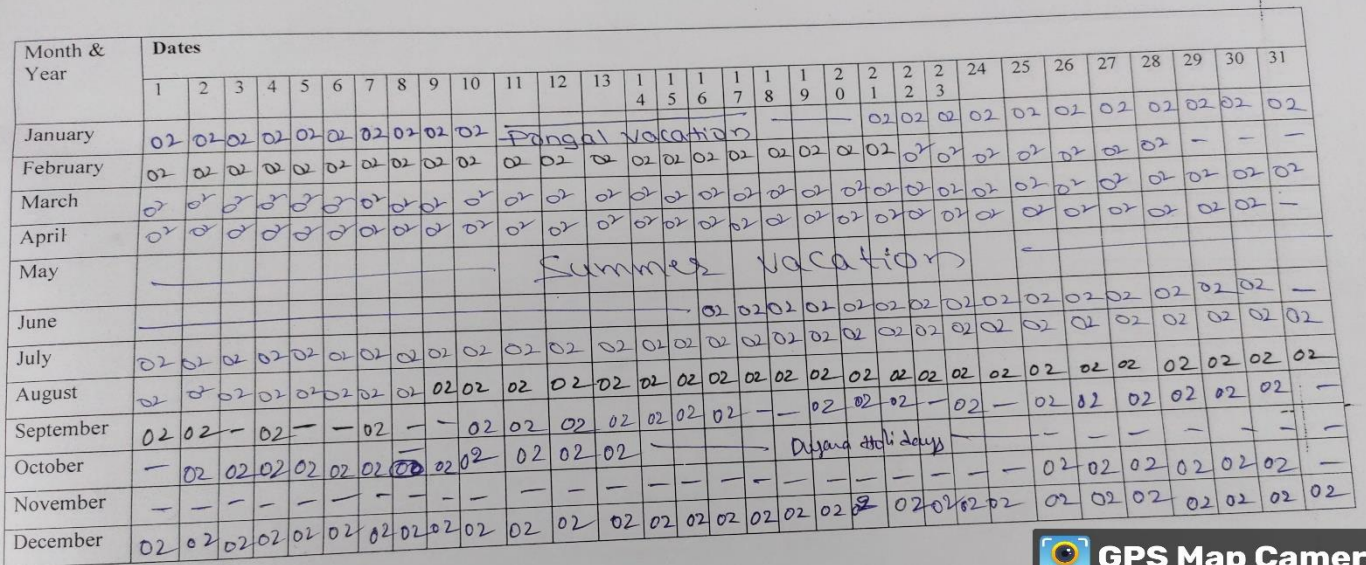 Month & Year Dates
1 2 3 4 5 6 7 8 9 10 11 12 13 14 15 16 17 18 19 20 21 22 23 24 25 26 27 28 29 30 31
January 02 02 02 02 02 02 02 02 02 02 Pongal Vacation — — 02 02 02 02 02 02 02 02 02 02 02
February 02 02 02 02 02 02 02 02 02 02 02 02 02 02 02 02 02 02 02 02 02 02 02 02 02 02 02 02 - - -
March 02 02 02 02 02 02 02 02 02 02 02 02 02 02 02 02 02 02 02 02 02 02 02 02 02 02 02 02 02 02 02
April 02 02 02 02 02 02 02 02 02 02 02 02 02 02 02 02 02 02 02 02 02 02 02 02 02 02 02 02 02 02 -
May — Summer Vacation —
June — 02 02 02 02 02 02 02 02 02 02 02 02 02 02 02 -
July 02 02 02 02 02 02 02 02 02 02 02 02 02 02 02 02 02 02 02 02 02 02 02 02 02 02 02 02 02 02 02
August 02 02 02 02 02 02 02 02 02 02 02 02 02 02 02 02 02 02 02 02 02 02 02 02 02 02 02 02 02 02 02
September 02 02 - 02 - - 02 - - 02 02 02 02 02 02 02 - - 02 02 02 - 02 - 02 02 02 02 02 02 -
October - 02 02 02 02 02 02 02 02 02 02 02 02 — Holidays — - - - - - - -
November - - - - - - - - - - - - - - - - - - - - - - - - 02 02 02 02 02 02 -
December 02 02 02 02 02 02 02 02 02 02 02 02 02 02 02 02 02 02 02 02 02 02 02 02 02 02 02 02 02 02 02
GPS Map Camer